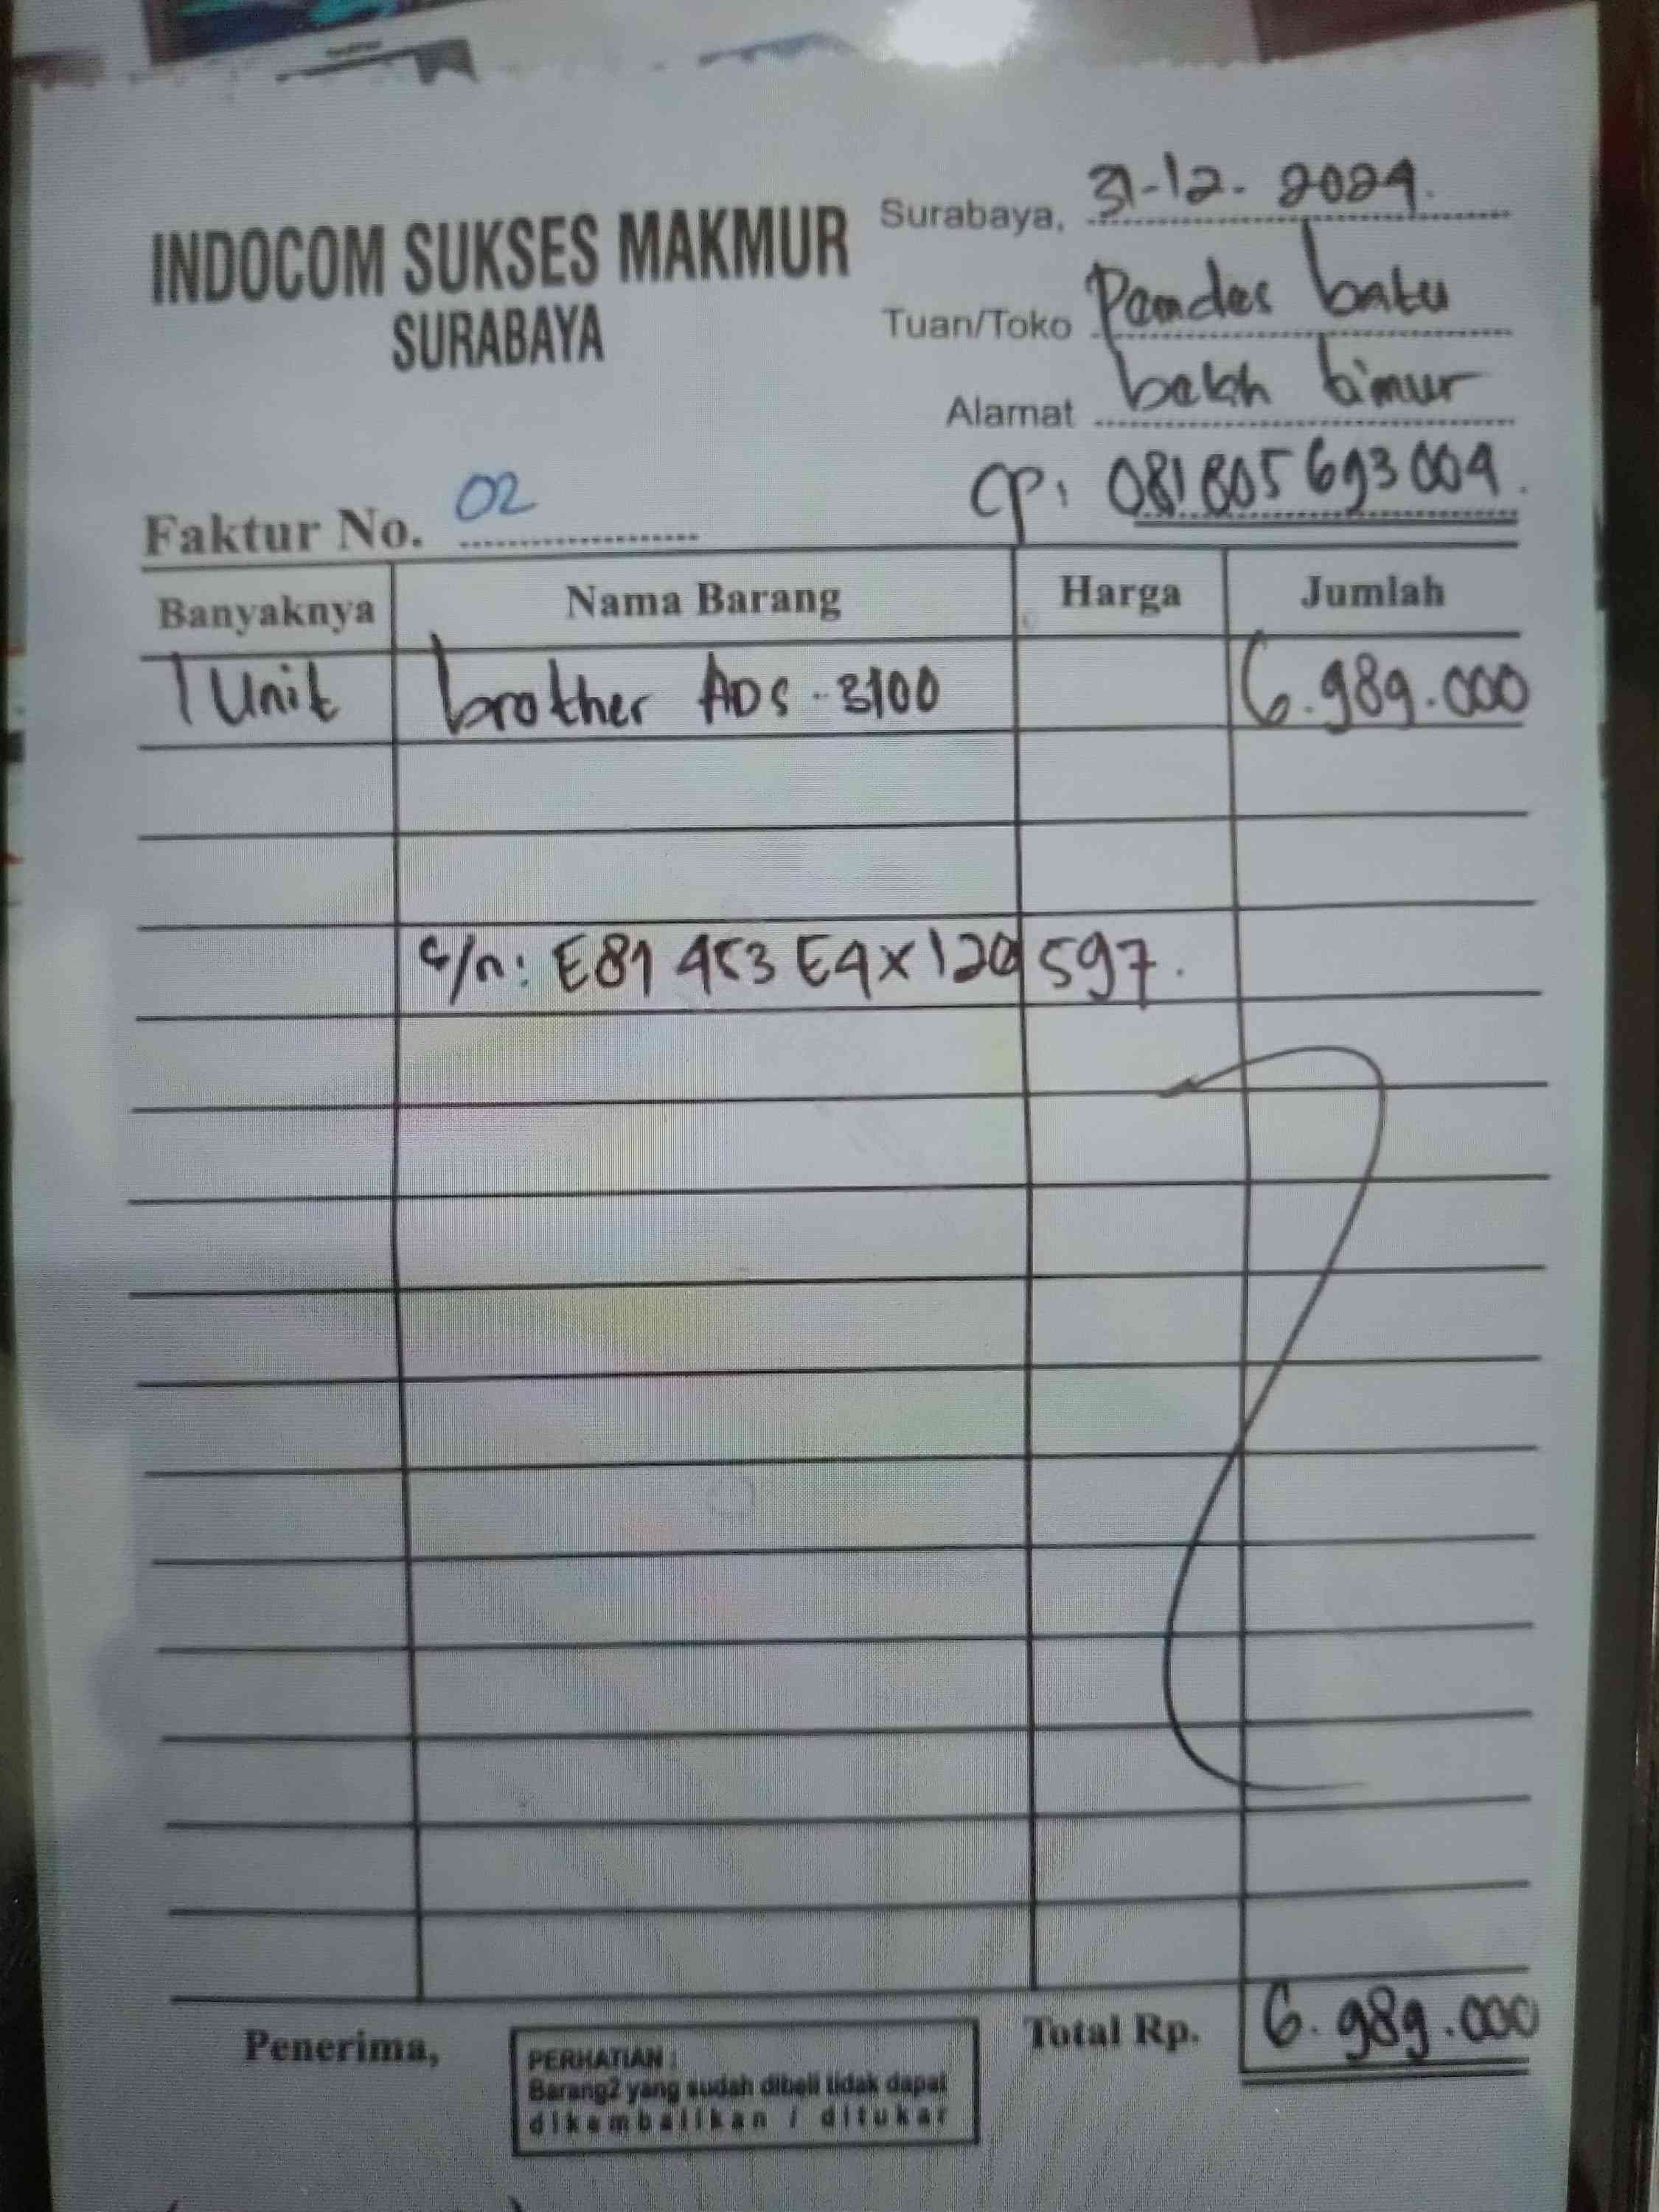 INDOCOM SUKSES MAKMUR
SURABAYA
Surabaya, 31-12-2024.
Tuan/Toko Pemdes batu
Alamat belah timur
CP: 081805693004.
Faktur No. 02
Banyaknya Nama Barang Harga Jumlah
1 Unit brother ADS-3100 6.989.000
s/n: E81 453 E4X120 597.
Penerima,
PERHATIAN :
Barang2 yang sudah dibeli tidak dapat
dikembalikan / ditukar
Total Rp. 6.989.000